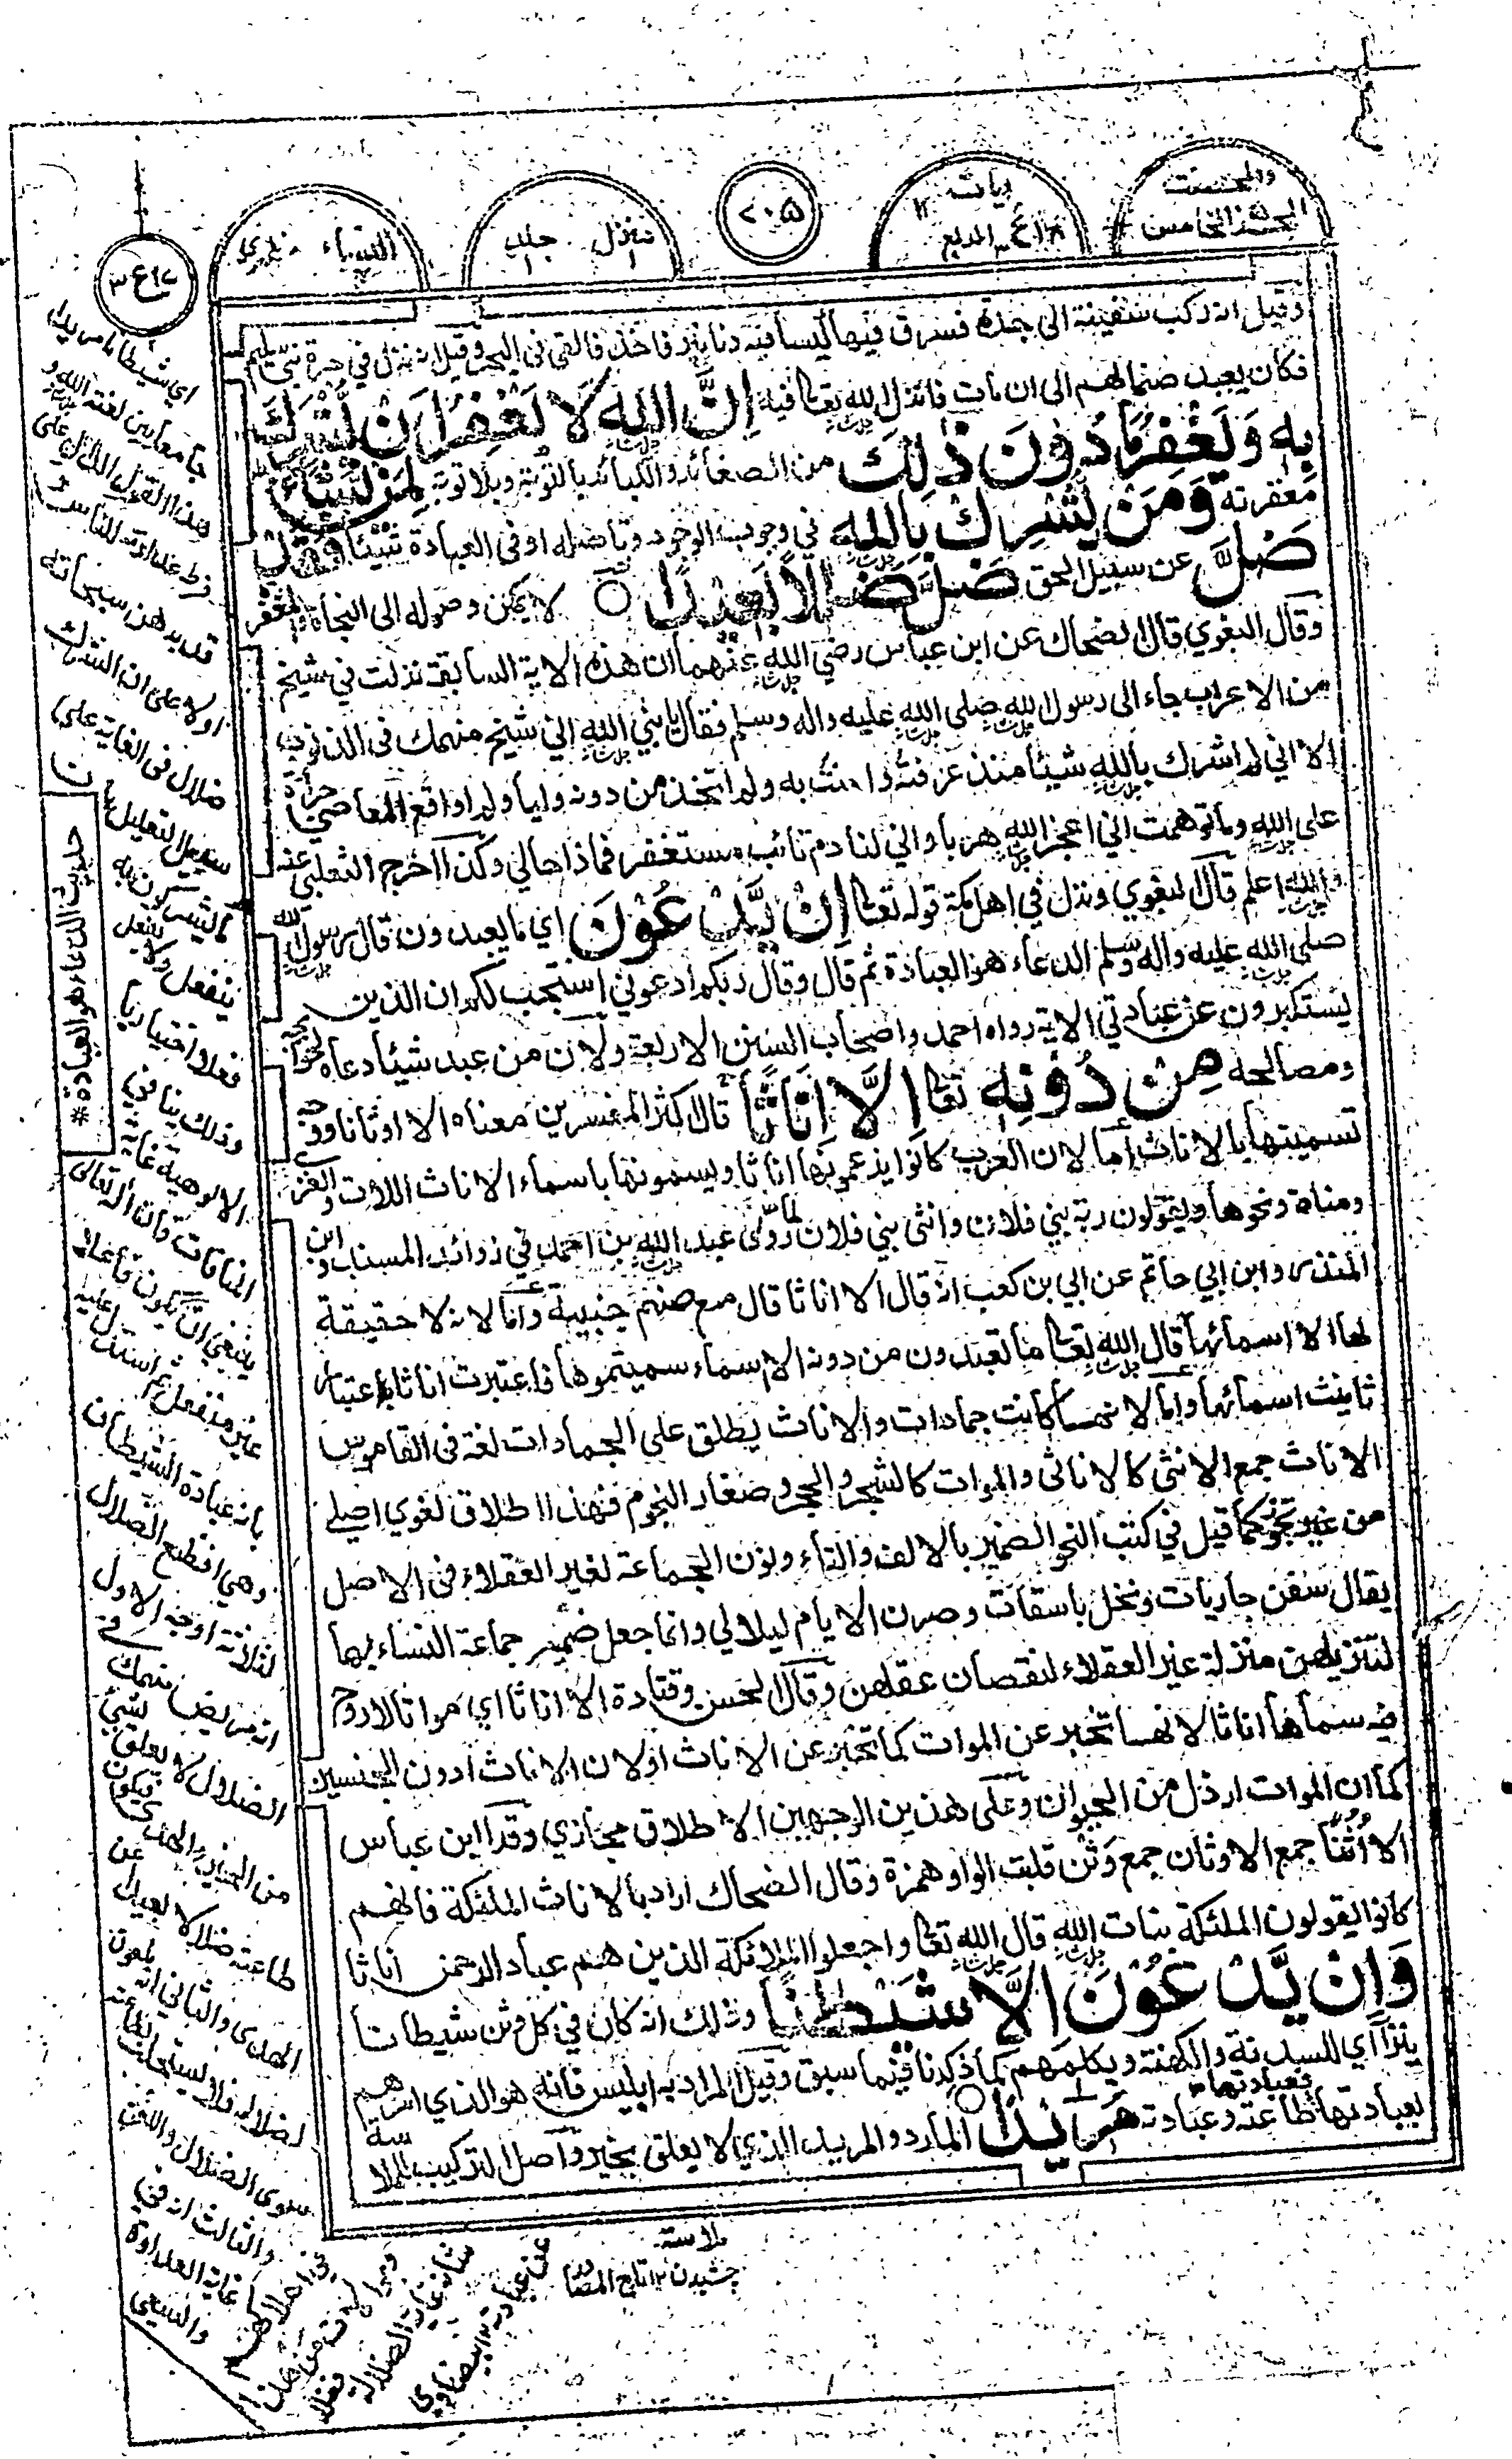 والمحصنت
الجزء الخامس
المربع
تنزل
جلد
النساء
٢٠٥
وقيل انه ركب سفينة الى جدة فسرق فيها كيسا فيه دنانير فاخذ فالقى فى البحر وقيل انه نزل في حرة بني سليم
فكان يعبد صنما لهم الى ان مات فانزل الله تعالى فيه اِنَّ اللهَ لَا يَغْفِرُ اَنْ يُّشْرَكَ
بِهٖ وَيَغْفِرُ مَا دُوْنَ ذٰلِكَ من الصغائر والكبائر بالتوبة وبلا توبة لِمَنْ يَّشَآءُ
مغفرته وَمَنْ يُّشْرِكْ بِاللهِ في وجوب الوجود وتأصله او فى العبادة شيئا فَقَدْ
ضَلَّ عن سبيل الحق ضَلٰلًا بَعِيْدًا ○ لا يمكن وصوله الى النجاة والمغفرة
وقال البغوي قال الضحاك عن ابن عباس رضي الله عنهما ان هذه الاية السابقة نزلت في شيخ
من الاعراب جاء الى رسول الله صلى الله عليه واله وسلم فقال يا نبي الله اني شيخ منهمك فى الذنوب
الا اني لم اشرك بالله شيئا منذ عرفته وامنت به ولم اتخذ من دونه وليا ولم اواقع المعاصي جراة
على الله وما توهمت اني اعجز الله هربا واني لنادم تائب مستغفر فماذا حالي وكذا اخرج الثعلبي عنه
والله اعلم قال البغوي ونزل في اهل مكة قوله تعالى اِنْ يَّدْعُوْنَ اي ما يعبدون قال رسول الله
صلى الله عليه واله وسلم الدعاء هو العبادة ثم قال وقال ربكم ادعوني استجب لكم ان الذين
يستكبرون عن عبادتي الاية رواه احمد واصحاب السنن الاربعة ولان من عبد شيئا دعاه لحوائجه
ومصالحه مِنْ دُوْنِهٖٓ تعالى اِلَّآ اِنٰثًا قال اكثر المفسرين معناه الا اوثانا وجه
تسميتها بالاناث اما لان العرب كانوا يزعمونها اناثا ويسمونها باسماء الاناث اللات والعزى
ومناة ونحوها ويقولون ربة بني فلان وانثى بني فلان لما روى عبد الله بن احمد في زوائد المسند وابن
المنذر وابن ابي حاتم عن ابي بن كعب انه قال الا اناثا قال مع كل صنم جنيية واما لانه لا حقيقة
لها الا اسمائها قال الله تعالى ما تعبدون من دونه الا اسماء سميتموها فاعتبرت اناثا باعتبار
تانيث اسمائها واما لانهسا كانت جمادات والاناث يطلق على الجمادات لغة فى القاموس
الاناث جمع الانثى كالاناثى والموات كالشجر والحجر وصغار النجوم فهذا اطلاق لغوي اصلي
من غير تجوز كما قيل في كتب النحو الضمير بالالف والتاء ونون الجماعة لغير العقلاء فى الاصل
يقال سفن جاريات ونخل باسقات وصرن الايام ليلالي وانما جعل ضمير جماعة النساء بها
لتنزيلهن منزلة غير العقلاء لنقصان عقلهن وقال الحسن وقتادة الا اناثا اي مواتا لا روح
فيه سماها اناثا لانهسا تخبر عن الموات كما تخبر عن الاناث او لان الاناث ادون الجنسين
كما ان الموات ارذل من الحيوان وعلى هذين الوجهين الاطلاق مجازي وقرا ابن عباس
الا اُثُنًا جمع الاوثان جمع وَثَن قلبت الواو همزة وقال الضحاك اراد بالاناث الملئكة فانهم
كانوا يقولون الملئكة بنات الله قال الله تعالى واجعلوا الملائكة الذين هم عباد الرحمن اناثا
وَاِنْ يَّدْعُوْنَ اِلَّا شَيْطٰنًا وذلك انه كان في كل وثن شيطانا
يتزاأى للسدنة والكهنة ويكلمهم كما ذكرنا فيما سبق وقيل المراد به ابليس فانه هو الذي امرهم
لعبادتها فعبادتها طاعته وعبادته مَّرِيْدًا ○ المارد والمريد الذي لا يعلق بخير واصل التركيب للملاسة
اي شيطانا مريدا
جامعا بين لعنة الله و
هذا القول الدال على
فرط عداوته للناس
قد برهن سبحانه
اولا على ان الشرك
ضلال فى الغاية على
سبيل التعليل
ما يشركون به
ينفعل ولا يفعل
فعلا اختياريا
وذلك ينافي
الالوهية غاية
المنافات فان الاله تعالى
ينبغي ان يكون فاعلا
غير منفعل ثم استدل عليه
بانه عبادة الشيطان
وهي افظع الضلال
لثلاثة اوجه الاول
انه مريد منهمك فى
الضلال لا يعلق بشئ
من الخير والهدى فيكون
طاعته ضلالا بعيدا عن
الهدى والثاني انه ملعون
لضلاله فلا يستجلب مطاوعته
سوى الضلال واللعن
والثالث انه في
غاية العداوة
والسعي
فى اهلاكهم
وموالاة من هذا
شانه غاية الضلال فضلا
عن عبادته ١٢ بيضاوي
حديث الدعاء هو العبادة *
ملاسته
چشيدن ١٢ تاج المصادر